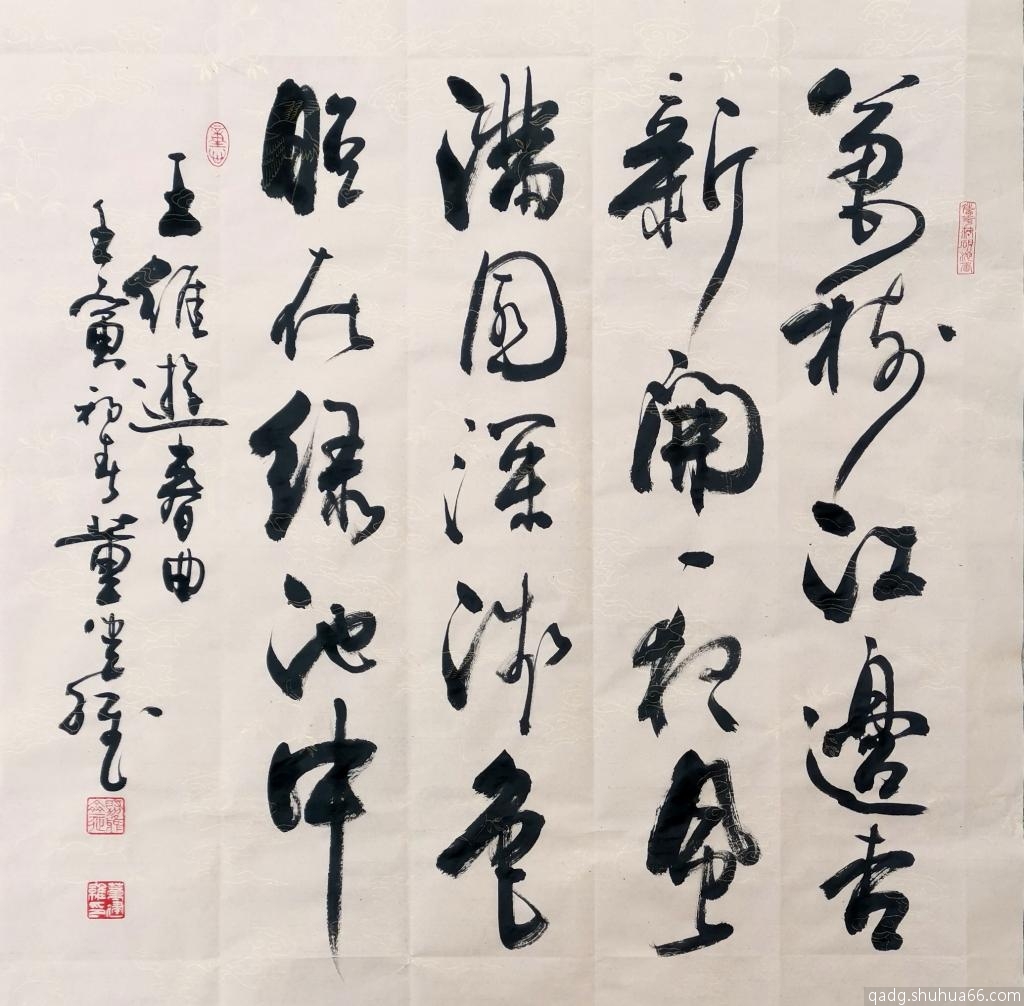 萬樹江邊杏
新開一夜風
滿園深淺色
照在綠池中
王維遊春曲
壬寅初春董
qadg.shuhua66.com